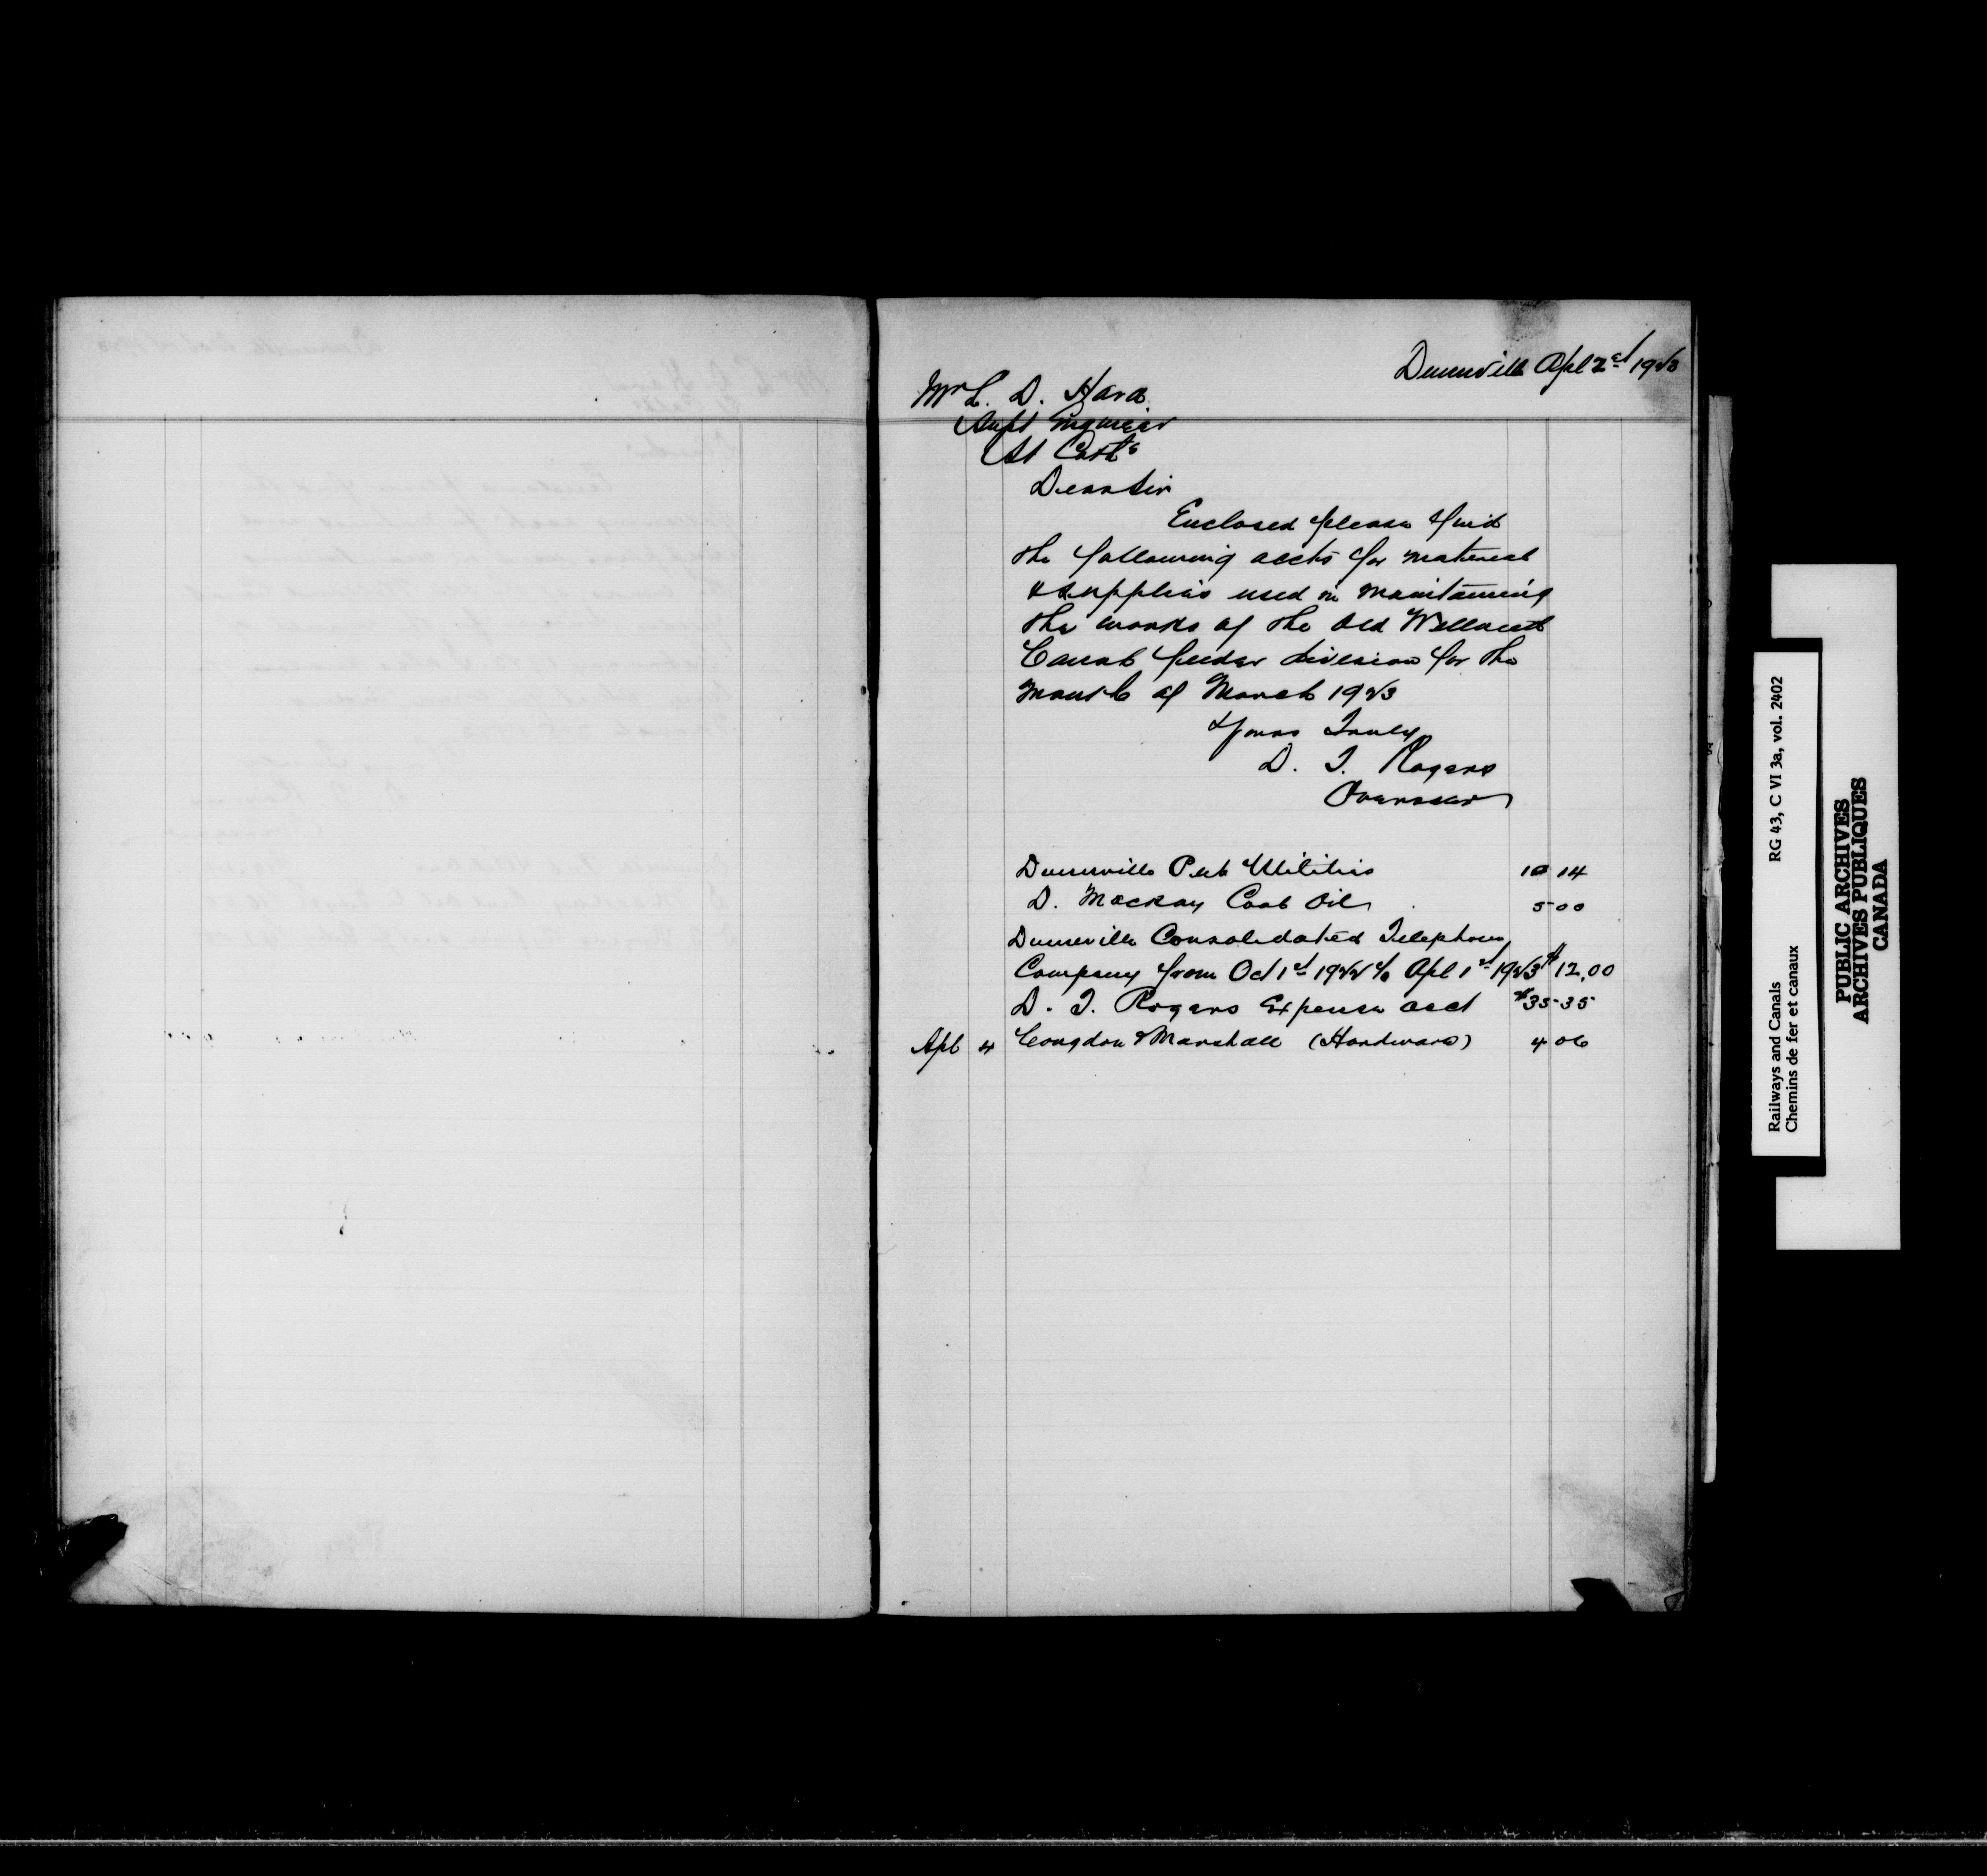 Dunnville Apl 2nd 1923
Mr L. D. Hara
Supt Engineer
St Caths
Dear Sir
Enclosed please find
the following accts for material
& supplies used in maintaining
the works of the Old Welland
Canal feeder division for the
Month of March 1923
Yours Truly
D. T. Rogers
Overseer
Dunnville Pub Utilities 10 14
D. Mackay Coal Oil 5 00
Dunnville Consolidated Telephone
Company from Oct 1st 1922 to Apl 1st 1923 $12.00
D. T. Rogers Expense acct $35 35
Apl 4 Congdon & Marshall (Hardware) 4 06
Railways and Canals RG 43, C VI 3a, vol. 2402
Chemins de fer et canaux
PUBLIC ARCHIVES
ARCHIVES PUBLIQUES
CANADA